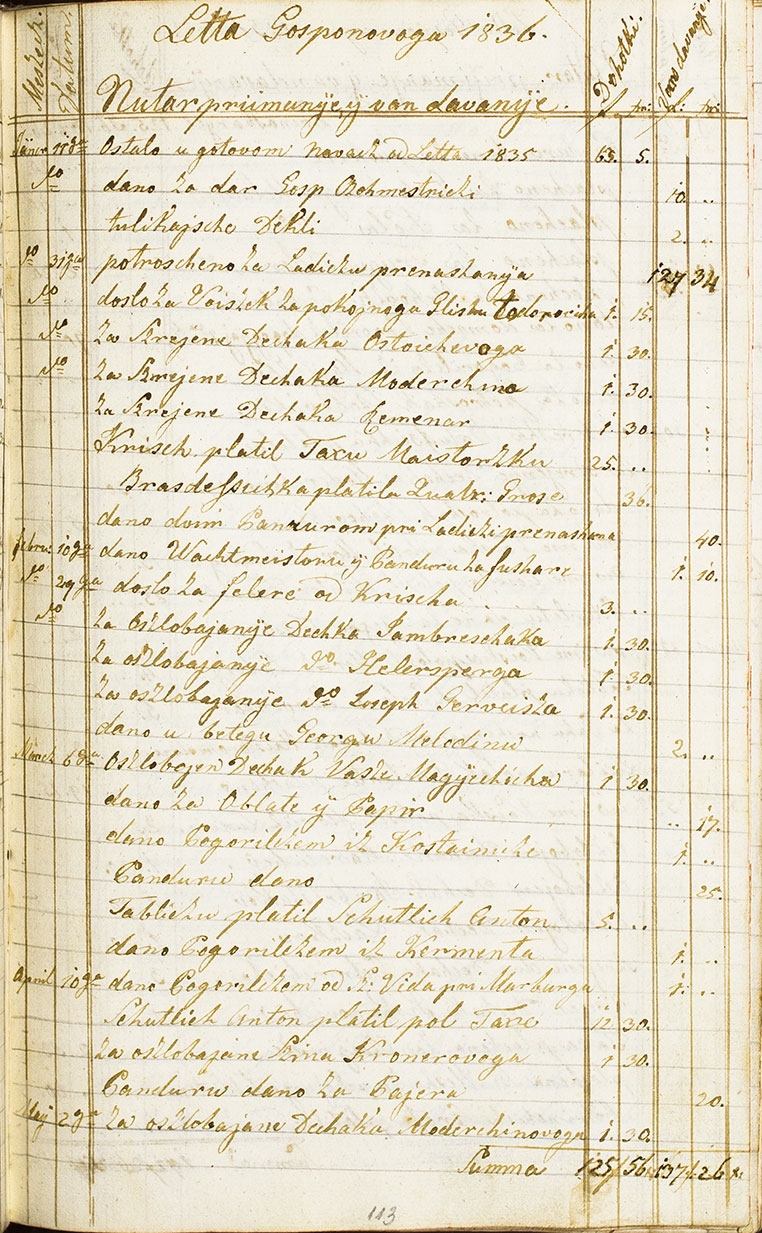 Letta Gosponovoga 1836.
Meszecz. Datum. Nutar priimanÿe, ÿ van davanÿe. Dohotki. Van davanje.
f. xr: f: xr:
Janer 11ga Ostalo u gotovom novacz od Letta 1835 63. 5.
do dano za dar Gosp Rechmestriczi 10. ..
tulikajsche Dekli 2. ..
do 31ga potroscheno za Ladiczu prenaszanÿa 127 34
do doslo za Voiszek za pokojnoga Glishu Todorovicha 1. 15.
do za Skrejene Dechaka Ostoichevoga 1. 30.
do Za Skrejene Dechaka Moderchina 1. 30.
za Skrejene Dechaka Remenar 1. 30.
Krisch platil Taxu Maistorzku 25. ..
Brasdefsichka platila Quatr: Grose 36.
dano dvim Pandurom pri Ladiczi prenashana 40.
Febru: 10ga dano Wachtmeistoru ÿ Panduru za fushare 1. 10.
do 29ga doslo za felere od Krischa 3. ..
do za oszlobajanÿe Dechka Jambreschaka 1. 30.
za oszlobajanÿe do Helersperga 1. 30.
za oszlobajanÿe do Joseph Gerveisza 1. 30.
dano u betegu Georgu Melodinu 2. ..
March 6ga Oszlobojen Dechak Vasze Magÿechicha 1 30.
dano za Oblate ÿ Papir .. 17.
dano Pogorilczem iz Kostainicze 1. ..
Panduru dano 25.
Tabliczu platil Schutlich Anton 5. ..
dano Pogorilczem iz Kermenta 1. ..
April 10ga dano Pogorilczem od Sz: Vida pri Marburga 1. ..
Schutlich Anton platil pol Taxe 12. 30.
za oszlobajane Szina Kronerovoga 1 30.
Panduru dano za Pajera 20.
Maÿ 2ga za oszlobajane Dechaka Moderchinovoga 1. 30.
Summa 125f 56x 137f. 26 x
113